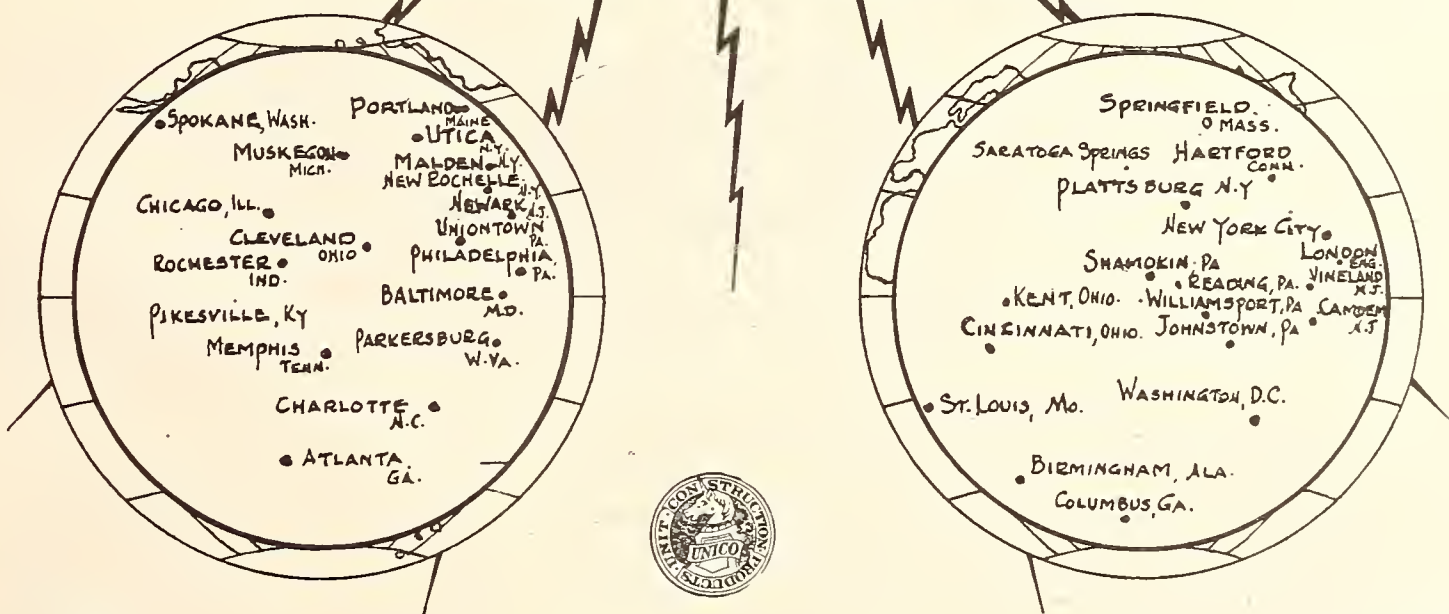 SPOKANE, WASH.
PORTLAND
MAINE
UTICA
N.Y.
MUSKEGON
MICH.
MALDEN N.Y.
NEW ROCHELLE
N.Y.
CHICAGO, ILL.
NEWARK
N.J.
UNIONTOWN
PA.
CLEVELAND
OHIO
ROCHESTER
IND.
PHILADELPHIA,
PA.
BALTIMORE
M.D.
PIKESVILLE, KY
MEMPHIS
TENN.
PARKERSBURG
W.VA.
CHARLOTTE
N.C.
ATLANTA.
GA.
UNIT · CONSTRUCTION · PRODUCTS
UNICO
SPRINGFIELD.
MASS.
SARATOGA SPRINGS
HARTFORD
CONN.
PLATTSBURG N.Y
NEW YORK CITY
LONDON
ENG.
SHAMOKIN PA
READING, PA.
VINELAND
N.J.
KENT, OHIO.
WILLIAMSPORT, PA
CAMDEN
N.J
CINCINNATI, OHIO.
JOHNSTOWN, PA
ST. LOUIS, MO.
WASHINGTON, D.C.
BIRMINGHAM, ALA.
COLUMBUS, GA.